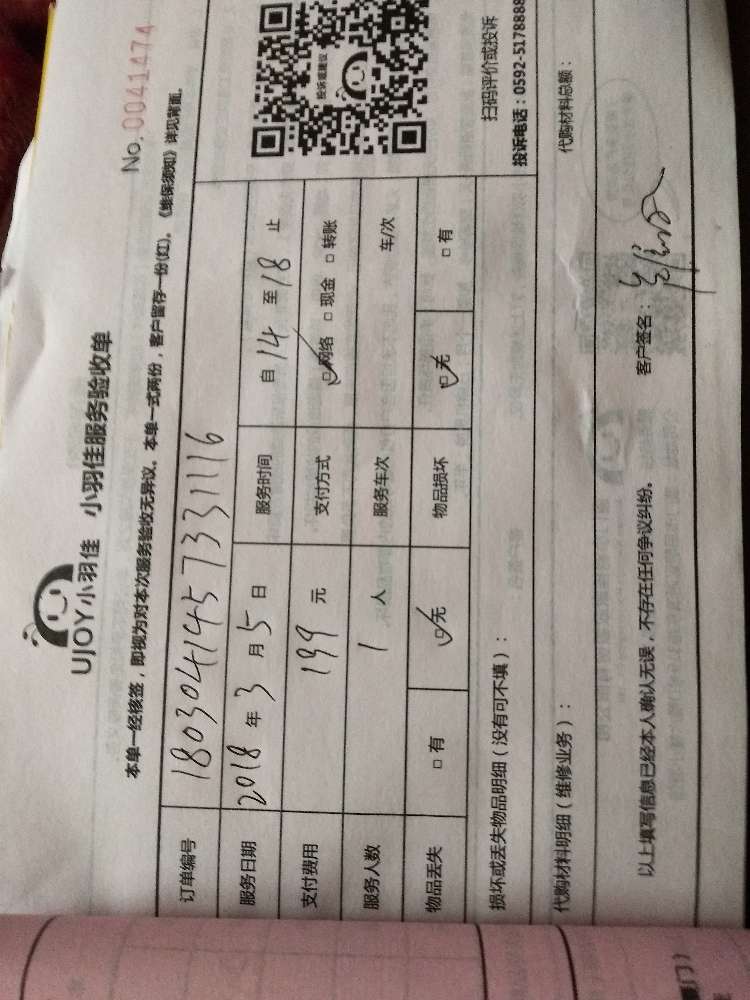 UJOY小羽佳 小羽佳服务验收单
No. 0041474
本单一经核签，即视为对本次服务验收无异议。本单一式两份，客户留存一份(红)。《维保须知》详见背面。
订单编号 180304145733 1116
服务日期 2018 年 3 月 5 日 服务时间 自 14 至 18 止
支付费用 199 元 支付方式 ☑ 网络 □ 现金 □ 转账
服务人数 1 人 服务车次 车/次
物品丢失 □ 有 ☑ 无 物品损坏 ☑ 无 □ 有
投诉或建议
扫码评价或投诉
投诉电话：0592-5178888
损坏或丢失物品明细（没有可不填）：
代购材料明细（维修业务）： 代购材料总额：
以上填写信息已经本人确认无误，不存在任何争议纠纷。 客户签名：
门）